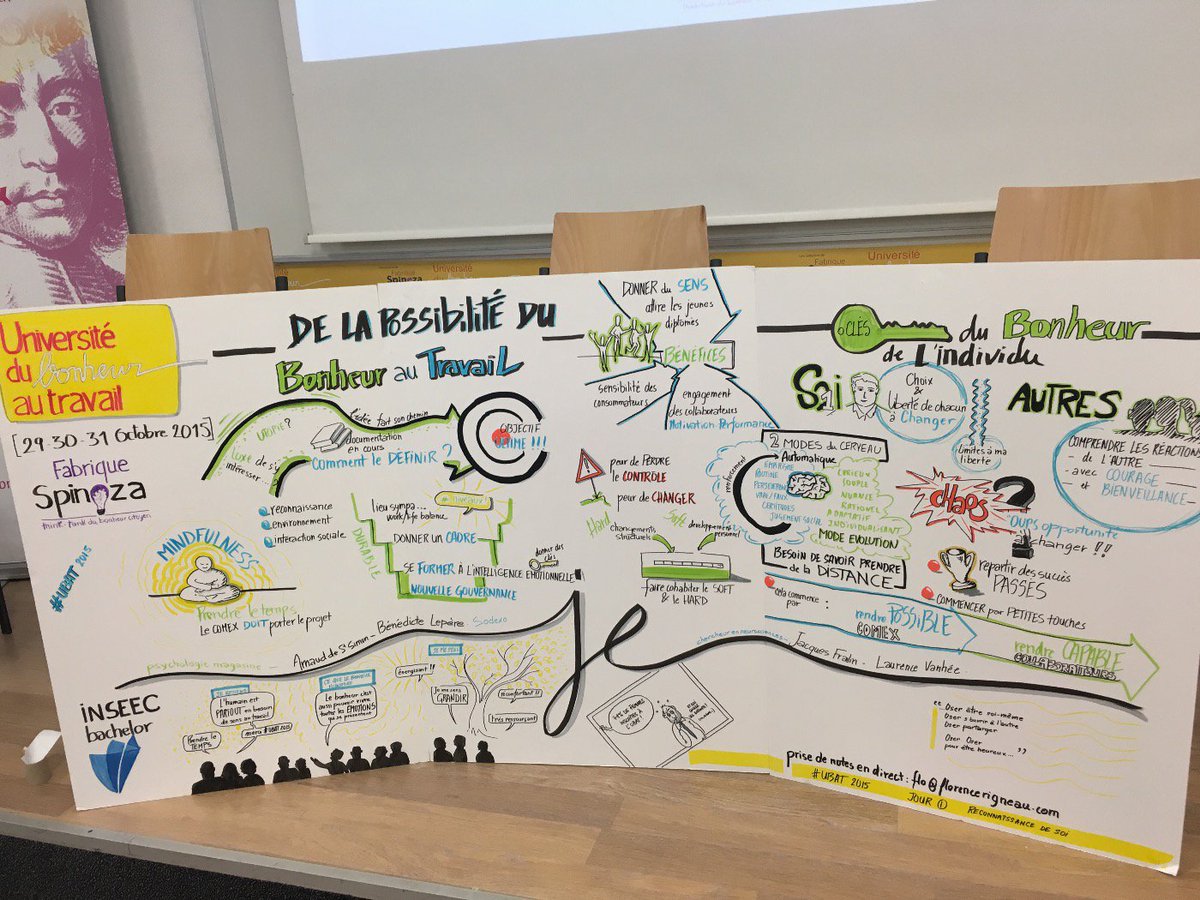 Université
du bonheur
au travail
[29-30-31 Octobre 2015]
Fabrique
Spinoza
think-tank du bonheur citoyen
#UBAT 2015
DE LA POSSIBILITÉ DU
Bonheur au Travail
UTOPIE?
Luxe de s'
intéresser...
L'idée fait son chemin
documentation
en cours
Comment le DÉFINIR?
OBJECTIF
ULTIME !!!
reconnaissance
environnement
interaction sociale
DURABLE
lieu sympa...
work/life balance
DONNER UN CADRE
donner des
clés
SE FORMER À L'INTELLIGENCE ÉMOTIONNELLE
NOUVELLE GOUVERNANCE
MINDFULNESS
Prendre le temps
Le COMEX DOIT porter le projet
psychologie magazine - Arnaud de St Simon - Bénédicte Lepère Sodexo
Je
iNSEEC
bachelor
L'humain est
PARTOUT en besoin
de sens au travail
Prendre le
TEMPS
merci #UBAT 2015
Le bonheur c'est
aussi pouvoir vivre
toutes les ÉMOTIONS
qui se présentent
énergisant!!
Je me sens
GRANDIR
réconfortant!!
très ressourçant
DONNER du SENS
attire les jeunes
diplômés
BÉNÉFICES
sensibilité des
consommateurs
engagement
des collaborateurs
Motivation Performance
peur de PERDRE
le CONTRÔLE
peur de CHANGER
Hard
changements
structurels
Soft
développement
personnel
faire cohabiter le SOFT
& le HARD
CLÉS du Bonheur
de L'individu
Soi
Choix &
Liberté de chacun
à Changer
Limites à ma
liberté
AUTRES
COMPRENDRE LES RÉACTIONS
- de L'AUTRE -
- avec COURAGE
et BIENVEILLANCE -
2 MODES du CERVEAU
Automatique
ROUTINE
CERTITUDES
JUGEMENT SOCIAL
CURIEUX
SOUPLE
NUANCÉ
RATIONEL
ADAPTATIF
INDIVIDUALISANT
MODE EVOLUTION
CHAOS
?
OUPS opportunité
à changer !!
BESOIN DE SAVOIR PRENDRE
de la DISTANCE
repartir des succès
PASSÉS
COMMENCER par PETITES touches
cela commence
par :
rendre POSSIBLE
COMEX
rendre CAPABLE
COLLABORATEURS
chercheur en neurosciences - Jacques Fradin - Laurence Vanhée
"Oser être soi-même
Oser s'ouvrir à l'autre
Oser partager
Oser Oser
pour être heureux..."
prise de notes en direct : flo@florencerigneau.com
#UBAT 2015 JOUR ① RECONNAISSANCE DE SOI
Fabrique
Spinoza
Université
Fabrique
Université